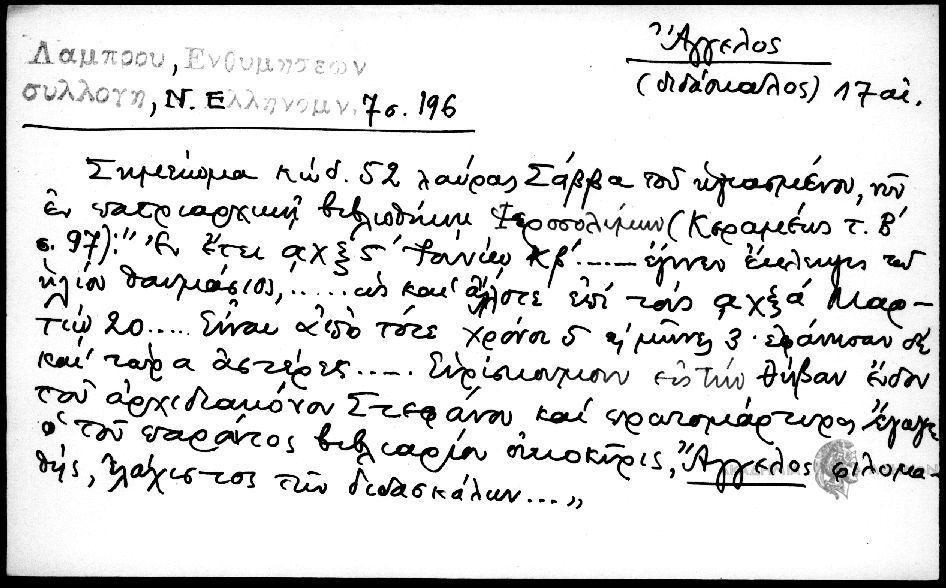 Λάμπρου, Ἐνθυμήσεων
συλλογή, Ν. Ἑλληνομν. 7 σ. 196
Ἄγγελος
(διδάσκαλος) 17 αἰ.
Σημείωμα κώδ. 52 λαύρας Σάββα τοῦ ἡγιασμένου, νῦν
ἐν πατριαρχικῇ βιβλιοθήκῃ Ἱεροσολύμων (Κεραμέως τ. Β΄
σ. 97): "Ἐν ἔτει ͵αχξς΄ Ἰουνίου κβ΄..... ἔγινεν ἔκλειψις τοῦ
ἡλίου θαυμάσιος, ..... ὡς καὶ ἄλλοτε ἐπὶ τοὺς ͵αχξά Μαρ-
τίῳ 20..... Εἶναι ἀπὸ τότε χρόνοι 5 μῆνες 3. ἐφάνησαν δὲ
καὶ τώρα ἀστέρες ..... Εὑρίσκουμουν εἰς τὴν Θήβαν ἔνδον
τοῦ ἀρχιδιακόνου Στεφάνου καὶ πρωτομάρτυρος ἔγωγε
ὁ τοῦ παρόντος βιβλιαρίου οἰκοκύρις, Ἄγγελος φιλομα-
θής, ἐλάχιστος τῶν διδασκάλων..."